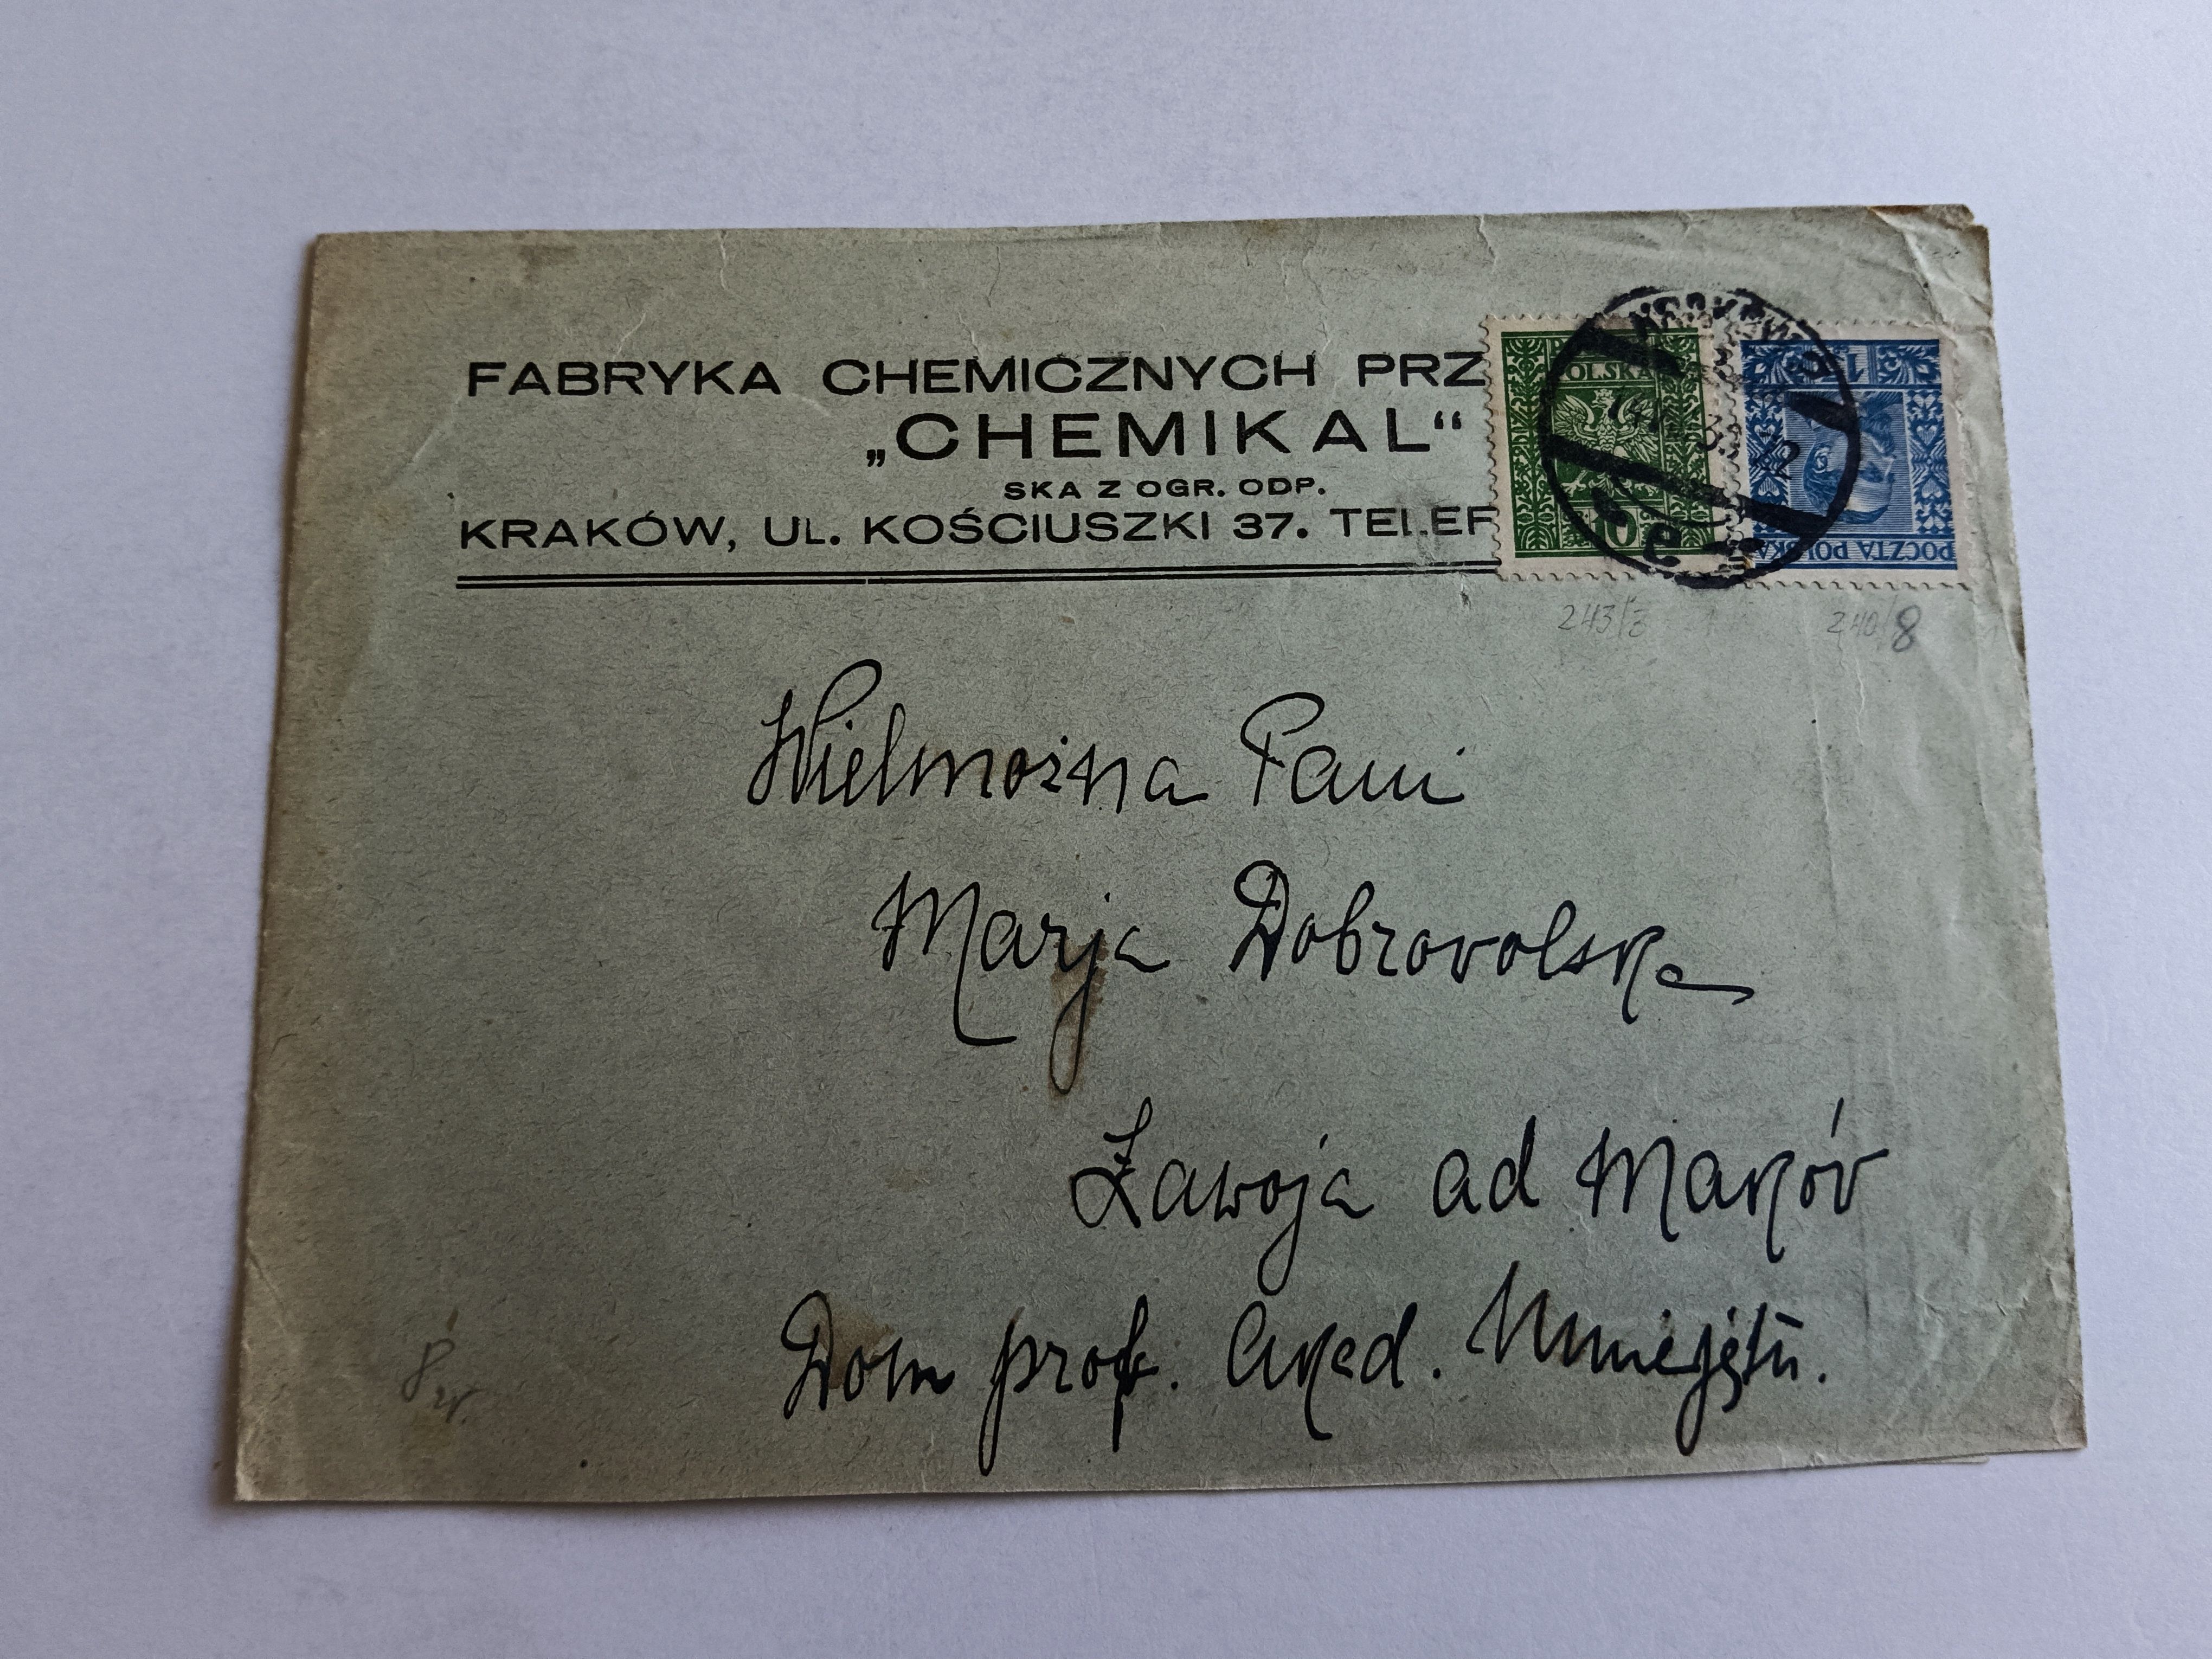 FABRYKA CHEMICZNYCH PRZ
„CHEMIKAL“
SKA Z OGR. ODP.
KRAKÓW, UL. KOŚCIUSZKI 37. TELEF
POLSKA
15
POCZTA POLSKA
243/3
240/8
Wielmożna Pani
Marja Dobrovolska
Zawoja ad Maków
Dom prof. Akad. Umiejętn.